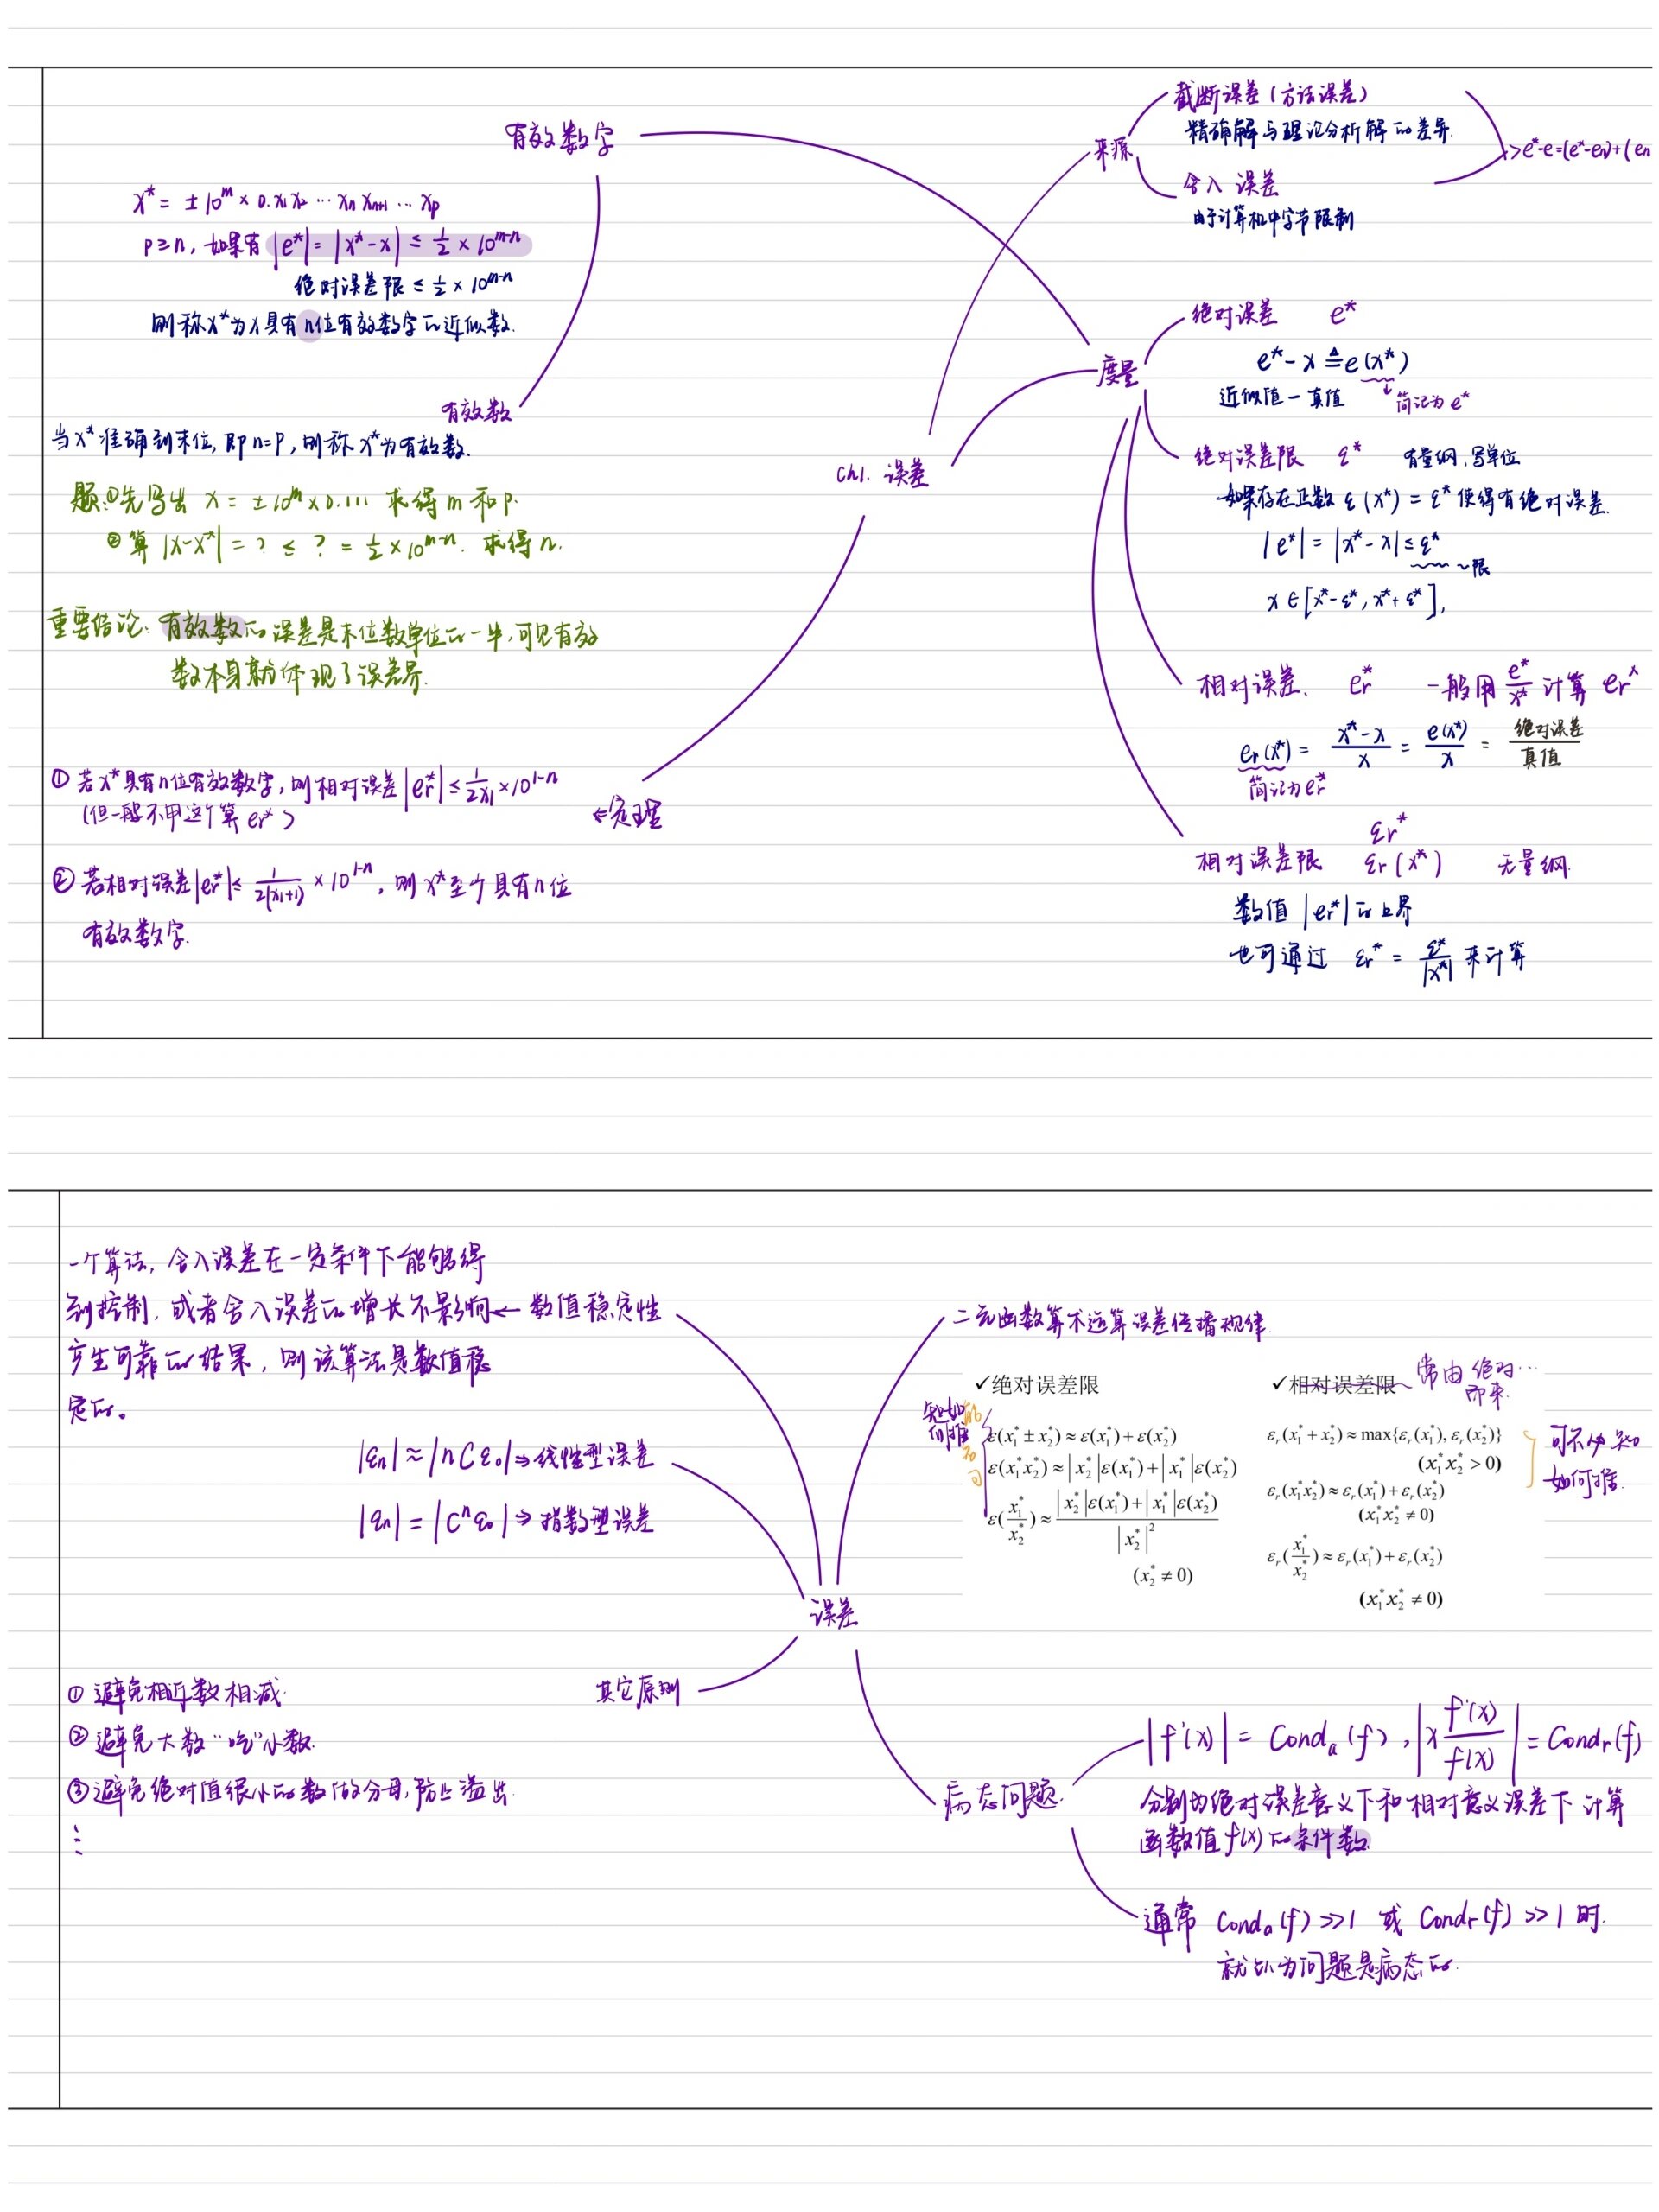 有效数字
x* = ±10^m × 0.x₁x₂ ⋯ xₙ xₙ₊₁ ⋯ xₚ
p ≥ n, 如果有 |e*| = |x* - x| ≤ 1/2 × 10^(m-n)
绝对误差限 ≤ 1/2 × 10^(m-n)
则称x*为x具有n位有效数字的近似数.
有效数
当x*准确到末位, 即n=p, 则称x*为有效数.
题: ①先写出 x = ±10^m × 0.111 求得 m 和 p.
② 算 |x-x*| = ? ≤ ? = 1/2 × 10^(m-n). 求得 n.
重要结论: 有效数的误差是末位数单位的一半, 可见有效
数本身就体现了误差界.
① 若x*具有n位有效数字, 则相对误差 |er*| ≤ 1/(2x₁) × 10^(1-n)
(但一般不用这个算 er*)
←定理
② 若相对误差|er*| ≤ 1/(2(x₁+1)) × 10^(1-n), 则x*至少具有n位
有效数字.
ch1. 误差
来源
截断误差 (方法误差)
精确解与理论分析解的差异.
舍入 误差
由于计算机中字节限制
> e*-e=(e*-en)+(en
度量
绝对误差 e*
e* - x ≜ e(x*)
近似值 - 真值
↓简记为 e*
绝对误差限 ε* 有量纲, 写单位
如果存在正数 ε(x*) = ε* 使得有绝对误差.
|e*| = |x* - x| ≤ ε*
~限
x ∈ [x*-ε*, x*+ε*],
相对误差. er* 一般用 e*/x* 计算 er*
er(x*) = (x*-x)/x = e(x*)/x = 绝对误差/真值
简记为er*
εr*
相对误差限 εr(x*) 无量纲.
数值 |er*| 的上界
也可通过 εr* = ε*/|x*| 来计算
一个算法, 舍入误差在一定条件下能够得
到控制, 或者舍入误差的增长不影响 ← 数值稳定性
产生可靠的结果, 则该算法是数值稳
定的。
|εn| ≈ |nCε₀| ⇒ 线性型误差
|εn| = |Cⁿε₀| ⇒ 指数型误差
误差
其它原则
① 避免相近数相减.
② 避免大数“吃”小数.
③ 避免绝对值很小的数做分母, 防止溢出.
⋮
二元函数算术运算误差传播规律.
✓绝对误差限
知如
何推
ε(x₁* ± x₂*) ≈ ε(x₁*) + ε(x₂*)
ε(x₁*x₂*) ≈ |x₂*|ε(x₁*) + |x₁*|ε(x₂*)
ε(x₁*/x₂*) ≈ (|x₂*|ε(x₁*) + |x₁*|ε(x₂*))/|x₂*|²
(x₂* ≠ 0)
✓相对误差限
常由 绝对…
即来.
εr(x₁* + x₂*) ≈ max{εr(x₁*), εr(x₂*)}
(x₁*x₂* > 0)
εr(x₁*x₂*) ≈ εr(x₁*) + εr(x₂*)
(x₁*x₂* ≠ 0)
εr(x₁*/x₂*) ≈ εr(x₁*) + εr(x₂*)
(x₁*x₂* ≠ 0)
可不少知
如何推.
病态问题.
|f'(x)| = Condₐ(f), |x f'(x)/f(x)| = Condᵣ(f)
分别为绝对误差意义下和相对意义误差下 计算
函数值 f(x) 的条件数.
通常 Condₐ(f) >>1 或 Condᵣ(f) >>1 时.
就认为问题是病态的.